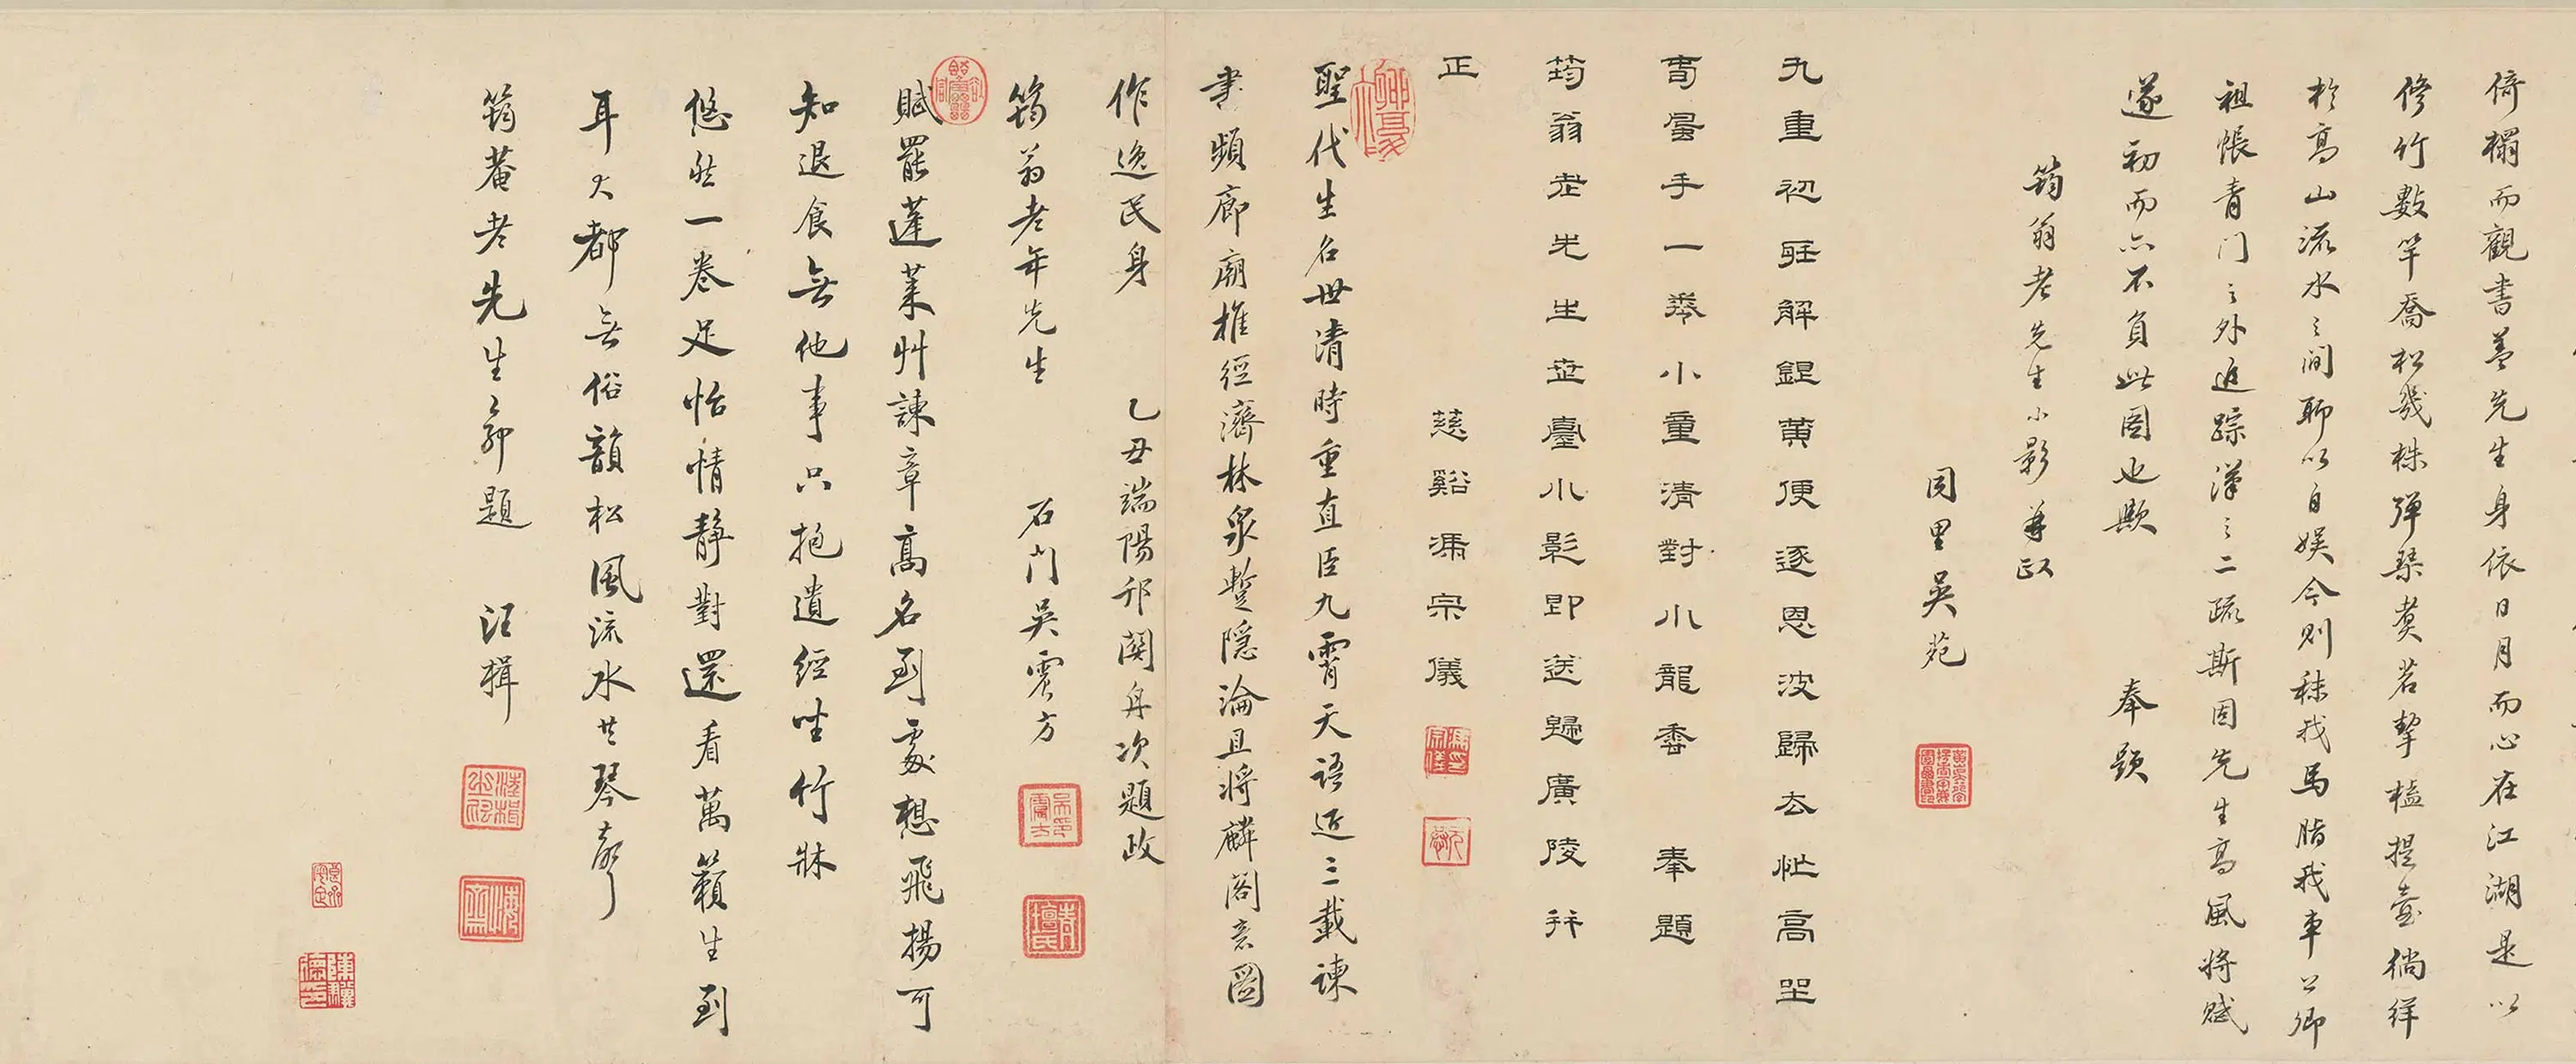 倚榻而觀書蓋先生身依日月而心在江湖是以
修竹數竿喬松幾株彈琴煑茗挈榼提壺徜徉
於高山流水之間聊以自娱今則秣我馬脂我車公卿
祖帳青门之外追踪漢之二疏斯固先生高風将賦
遂初而亦不負此图也歟 奉题
筠翁老先生小影並政
同里吴苑
九重初许解銀黄便逐恩波歸去忙高坐
看雲手一卷小童清對小龍香 奉題
筠翁老先生世臺小影即送歸廣陵并
正 慈谿馮宗儀
聖代生名世清時重直臣九霄天語近三載諫
書頻廊廟推經濟林泉暫隱淪且将麟阁意圖
作逸民身 乙丑端陽邗関舟次題政
筠翁老年先生 石门吴震方
賦罷蓬萊艸諫章高名到處想飛揚可
知退食無他事只抱遺經坐竹牀
悠然一卷足怡情静對還看萬籟生到
耳大都無俗韻松風流水共琴聲
筠菴老先生命題 汪楫